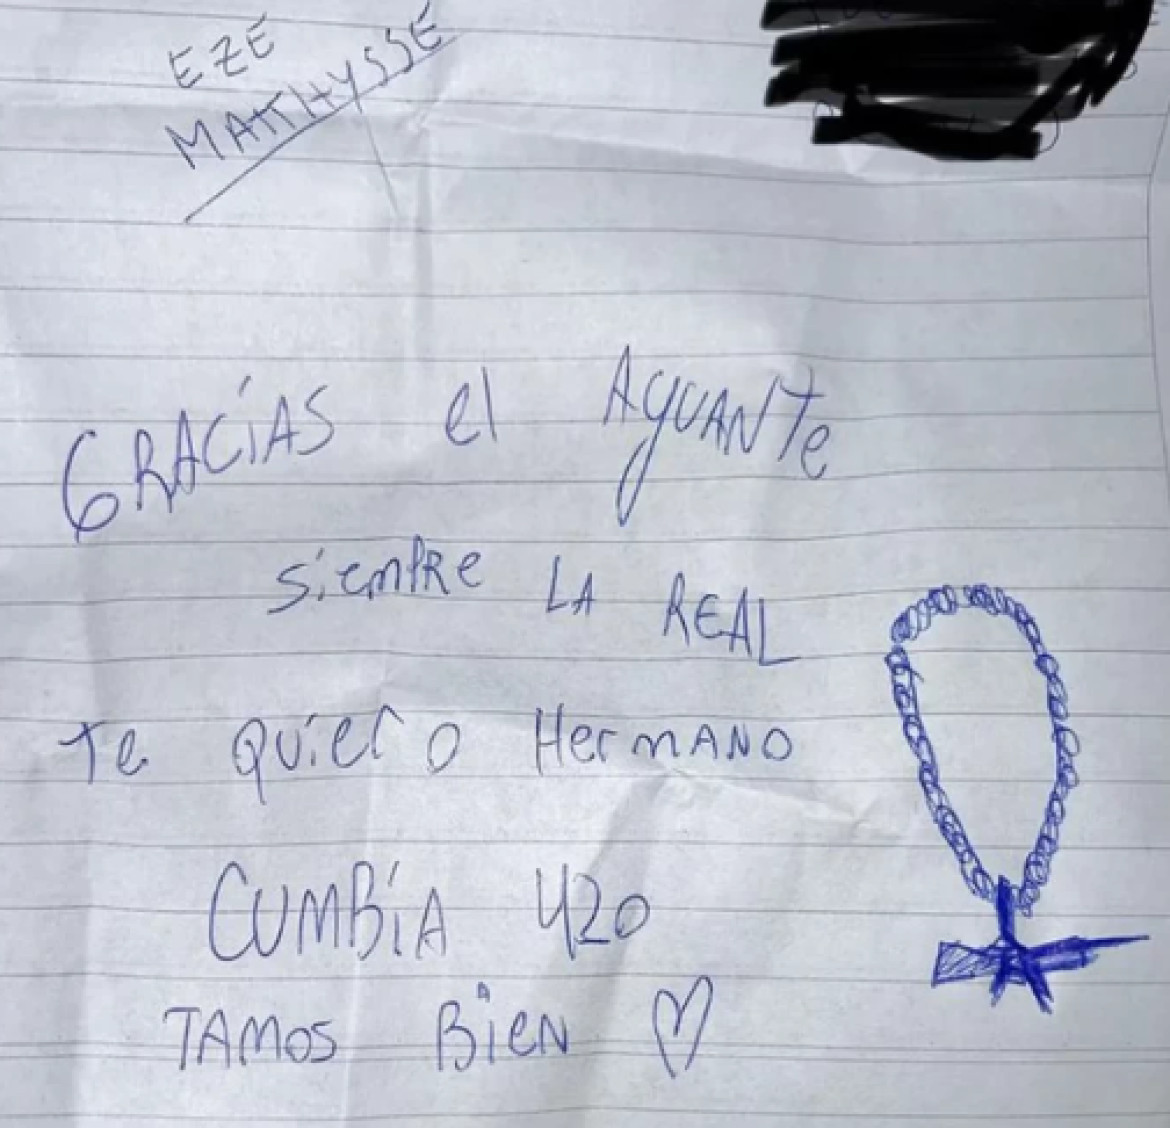 EZE
MATTHYSSE
GRACÍAS el AGUANTe
siemPRe LA REAL
te quiero HermANO
CUMBÍA 420
TAMOS BíEN